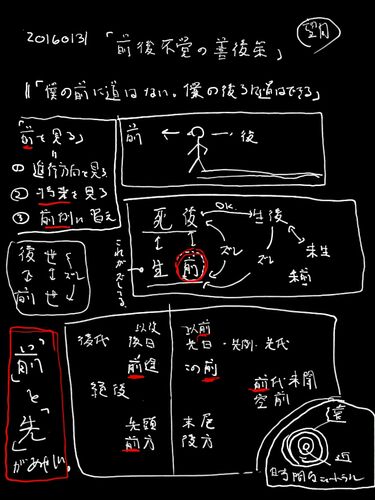 20160131 「前後不覚の善後策」
「僕の前に道はない。僕の後ろに道はできる」
「前を見る」
① 進行方向を見る
② 将来を見る
③ 前例に
前 ← → 後
死後 OK 生後
生前 ズレ ズレ 未生
これがズレてる 未前
後世
ズレ
前世
後代 以後 以前
後日 先日・先例・先代
前進 この前
絶後 前代未聞
空前
先頭 末尾
前方 後方
遠
近
時間
「前」
と
「先」
があやしい。